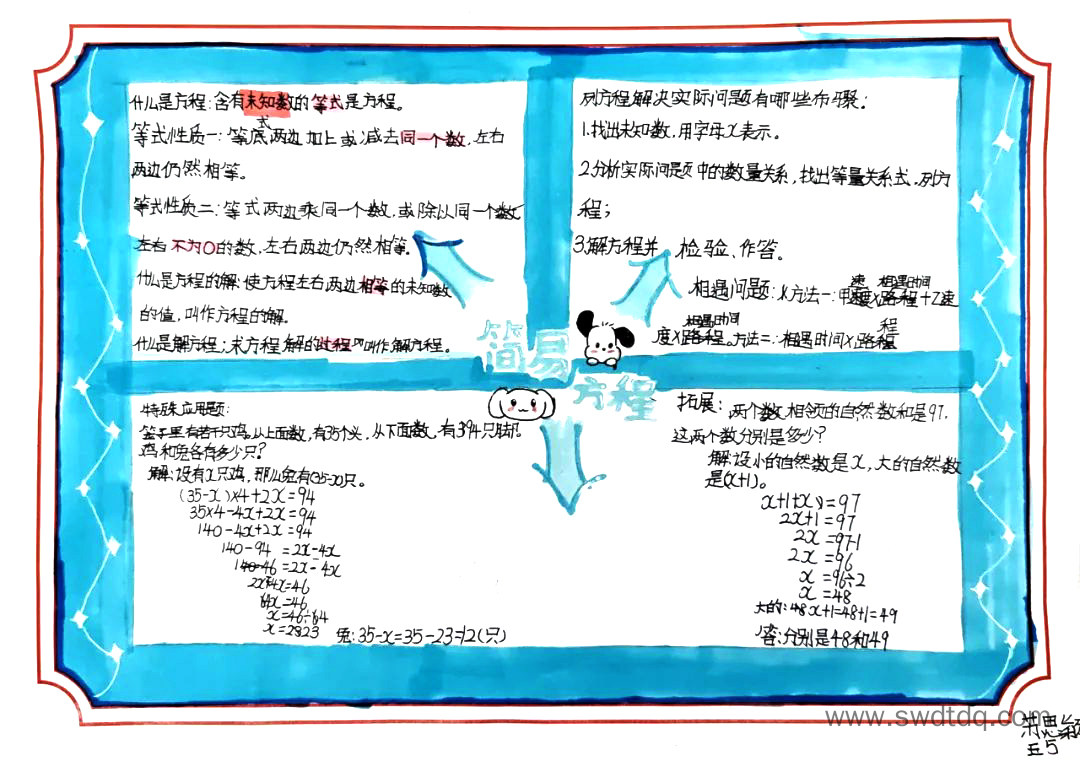 什么是方程：含有未知数的等式是方程。
式
等式性质一：等底两边加上或减去同一个数，左右
两边仍然相等。
等式性质二：等式两边乘同一个数，或除以同一个数
左右不为0的数，左右两边仍然相等。
什么是方程的解：使方程左右两边相等的未知数
的值，叫作方程的解。
什么是解方程：求方程解的过程叫作解方程。
列方程解决实际问题有哪些步骤：
1.找出未知数，用字母x表示。
2.分析实际问题中的数量关系，找出等量关系式，列方
程；
3.解方程并 检验、作答。
速 相遇时间
相遇问题：方法一：甲速度×路程+乙速
相遇时间 程
度×路程。方法二：相遇时间×路程
简易
方程
特殊应用题：
笼子里有若干只鸡。从上面数，有35个头，从下面数，有394只脚。
鸡和兔各有多少只？
解：设有x只鸡，那么兔有(35-x)只。
(35-x)×4+2x=94
35×4-4x+2x=94
140-4x+2x=94
140-94=2x-4x
46=2x-4x
x=46
x=46
x=46÷
x=2823
兔：35-x=35-23=12(只)
拓展：两个数相邻的自然数和是97.
这两个数分别是多少？
解：设小的自然数是x，大的自然数
是(x+1)。
x+1+x=97
2x+1=97
2x=97-1
2x=96
x=96÷2
x=48
大的：48x+1=48+1=49
答：分别是48和49
www.swdtdq.com
思颖
五5